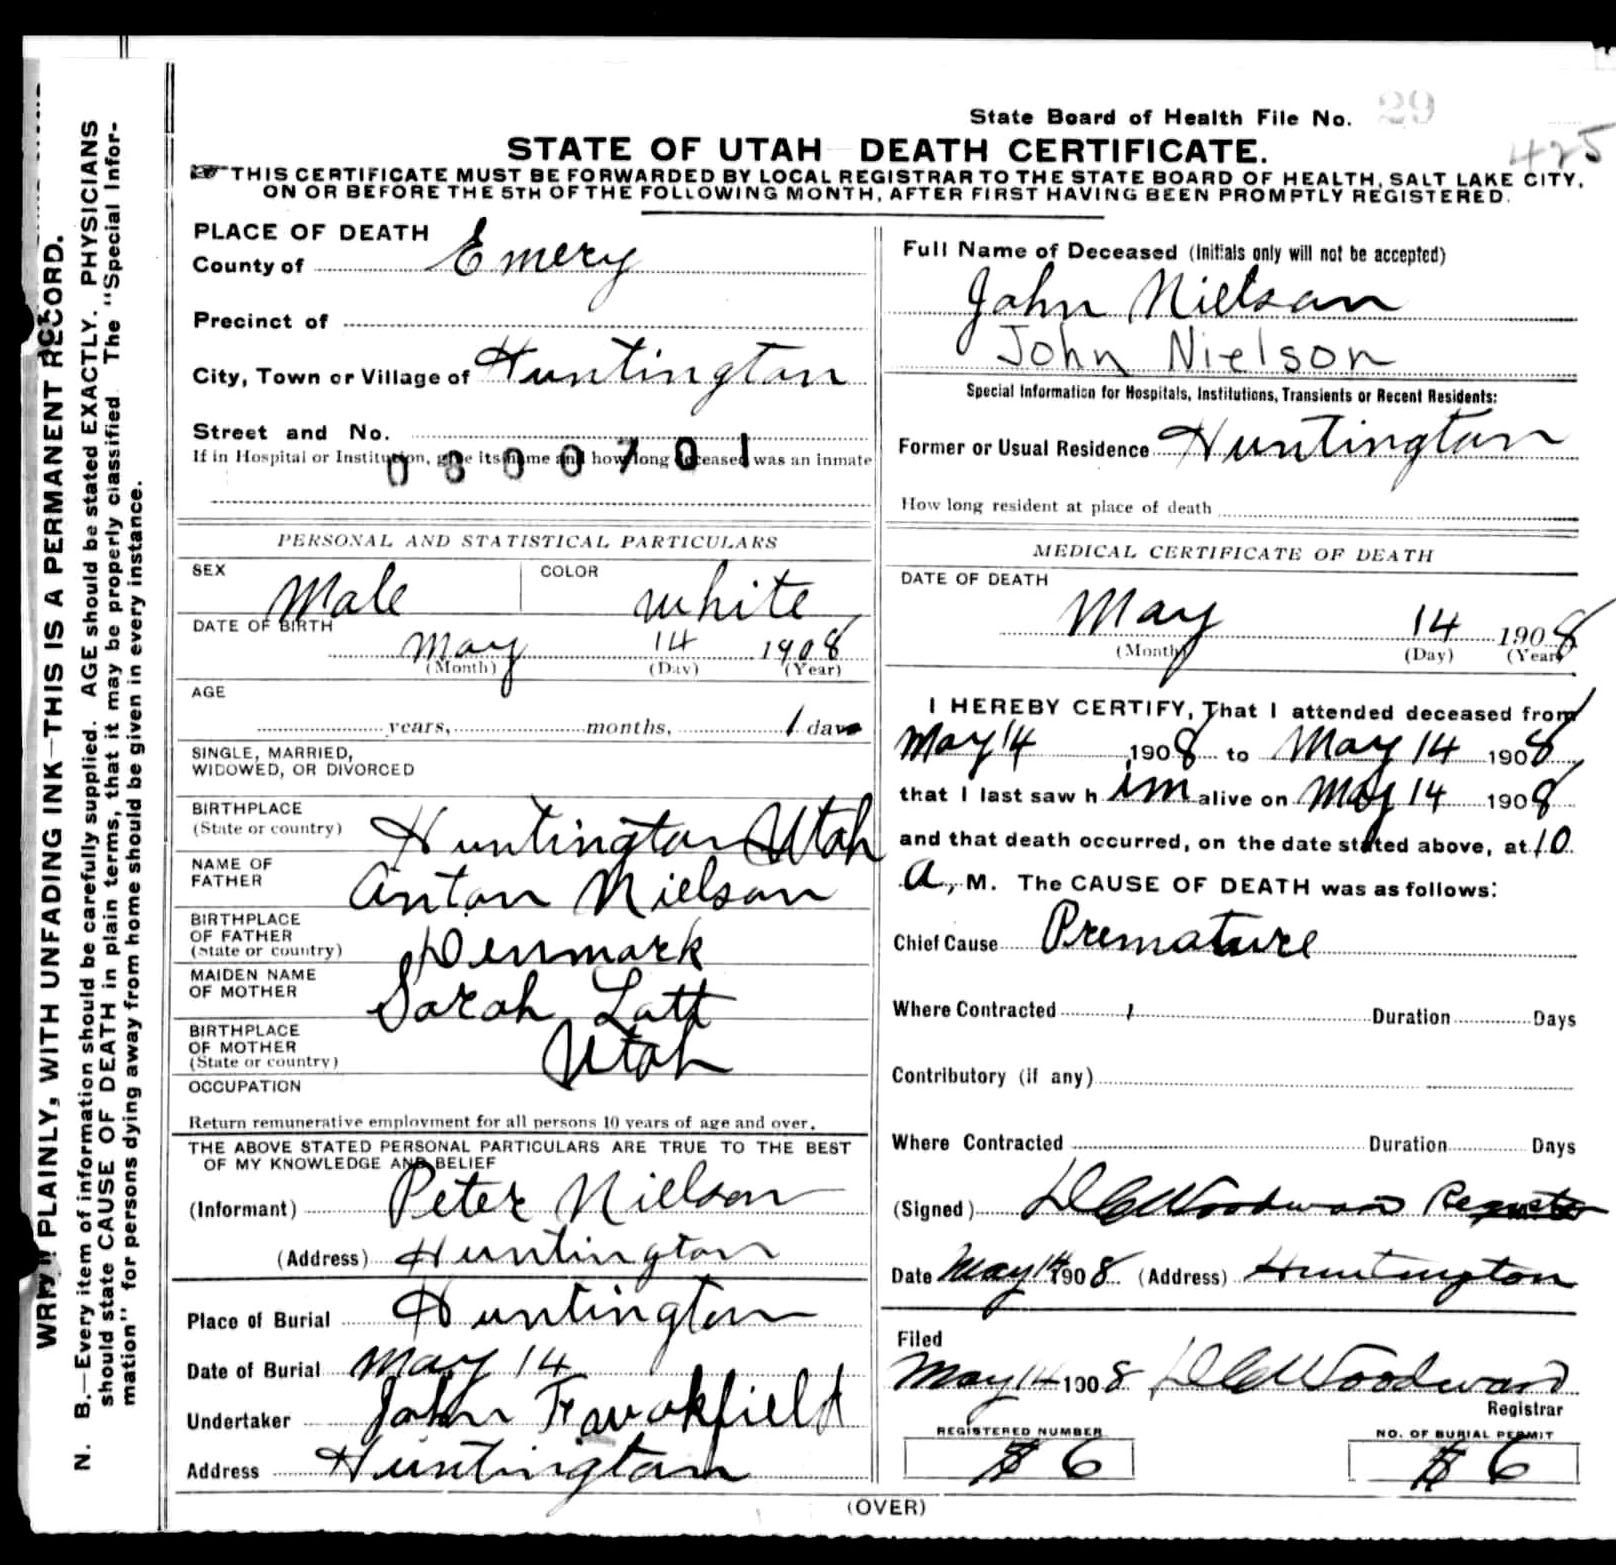 State Board of Health File No. 29
425
STATE OF UTAH DEATH CERTIFICATE.
THIS CERTIFICATE MUST BE FORWARDED BY LOCAL REGISTRAR TO THE STATE BOARD OF HEALTH, SALT LAKE CITY,
ON OR BEFORE THE 5TH OF THE FOLLOWING MONTH, AFTER FIRST HAVING BEEN PROMPTLY REGISTERED.
PLAINLY, WITH UNFADING INK—THIS IS A PERMANENT RECORD.
N. B.—Every item of information should be carefully supplied. AGE should be stated EXACTLY. PHYSICIANS
should state CAUSE OF DEATH in plain terms, that it may be properly classified. The "Special Infor-
mation" for persons dying away from home should be given in every instance.
PLACE OF DEATH
County of Emery
Precinct of
City, Town or Village of Huntington
Street and No.
If in Hospital or Institution, give its name and how long deceased was an inmate
0800701
PERSONAL AND STATISTICAL PARTICULARS
SEX Male COLOR White
DATE OF BIRTH
May 14 1908
(Month) (Day) (Year)
AGE
years, months, 1 days
SINGLE, MARRIED,
WIDOWED, OR DIVORCED
BIRTHPLACE
(State or country) Huntington Utah
NAME OF
FATHER Anton Nielson
BIRTHPLACE
OF FATHER
(State or country) Denmark
MAIDEN NAME
OF MOTHER Sarah Latt
BIRTHPLACE
OF MOTHER
(State or country) Utah
OCCUPATION
Return remunerative employment for all persons 10 years of age and over.
THE ABOVE STATED PERSONAL PARTICULARS ARE TRUE TO THE BEST
OF MY KNOWLEDGE AND BELIEF
(Informant) Peter Nielson
(Address) Huntington
Place of Burial Huntington
Date of Burial May 14
Undertaker John F. Wakefield
Address Huntington
Full Name of Deceased (Initials only will not be accepted)
John Nielson
John Nielson
Special Information for Hospitals, Institutions, Transients or Recent Residents:
Former or Usual Residence Huntington
How long resident at place of death
MEDICAL CERTIFICATE OF DEATH
DATE OF DEATH
May 14 1908
(Month) (Day) (Year)
I HEREBY CERTIFY, That I attended deceased from
May 14 1908 to May 14 1908
that I last saw h im alive on May 14 1908
and that death occurred, on the date stated above, at 10
A. M. The CAUSE OF DEATH was as follows:
Chief Cause Premature
Where Contracted Duration Days
Contributory (if any)
Where Contracted Duration Days
(Signed) D C Woodward
Date May 14 1908 (Address) Huntington
Filed
May 14 1908 D C Woodward
Registrar
REGISTERED NUMBER
6
NO. OF BURIAL PERMIT
6
(OVER)